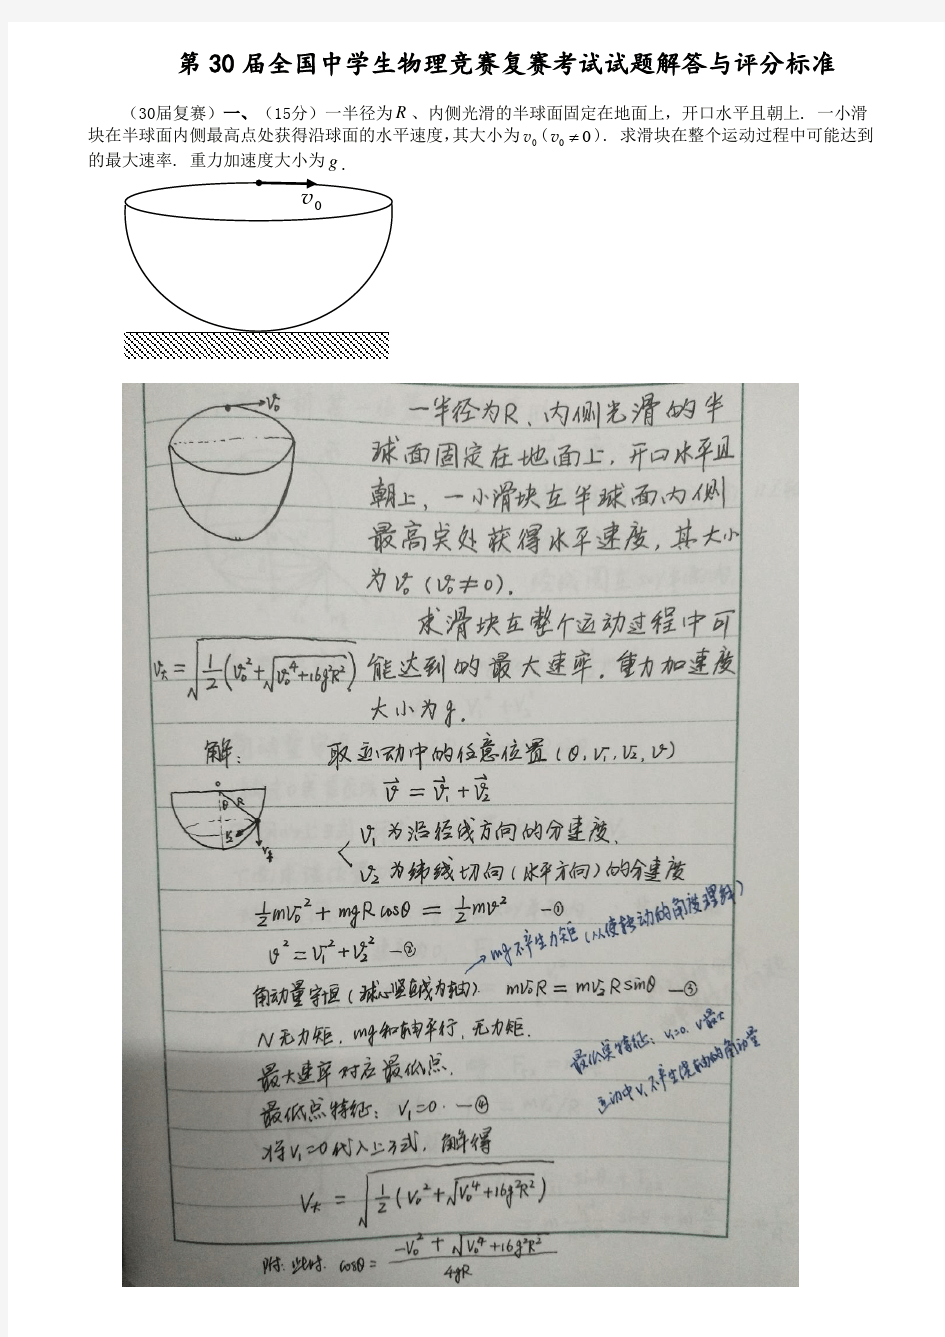 第30届全国中学生物理竞赛复赛考试试题解答与评分标准
（30届复赛）一、（15分）一半径为R、内侧光滑的半球面固定在地面上，开口水平且朝上. 一小滑
块在半球面内侧最高点处获得沿球面的水平速度，其大小为v₀（v₀≠0）. 求滑块在整个运动过程中可能达到
的最大速率. 重力加速度大小为g.
v₀
v₀
一半径为R、内侧光滑的半
球面固定在地面上，开口水平且
朝上，一小滑块在半球面内侧
最高点处获得水平速度，其大小
为v₀（v₀≠0）.
求滑块在整个运动过程中可
v大=√(1/2(v₀²+√(v₀⁴+16g²R²))
能达到的最大速率. 重力加速度
大小为g.
解: 取运动中的任意位置(θ, v₁, v₂, v)
v⃗ = v⃗₁ + v⃗₂
o
θ R
v₁为沿经线方向的分速度.
v₂为纬线切向(水平方向)的分速度
1/2mv₀² + mgRcosθ = 1/2mv² —①
v² = v₁² + v₂² —②
→mg不产生力矩(从使转动的角度理解)
角动量守恒(球心竖直线为轴) mv₀R = mv₂Rsinθ —③
N无力矩. mg和轴平行, 无力矩.
最大速率对应最低点.
最低点特征: v₁=0. v最大
最低点特征: V₁=0. —④
运动中v₁不产生绕轴的角动量
将V₁=0代入上三式, 解得
V大 = √(1/2(V₀²+√(V₀⁴+16g²R²))
附: 此时. cosθ = (-V₀² + √(V₀⁴+16g²R²))/4gR